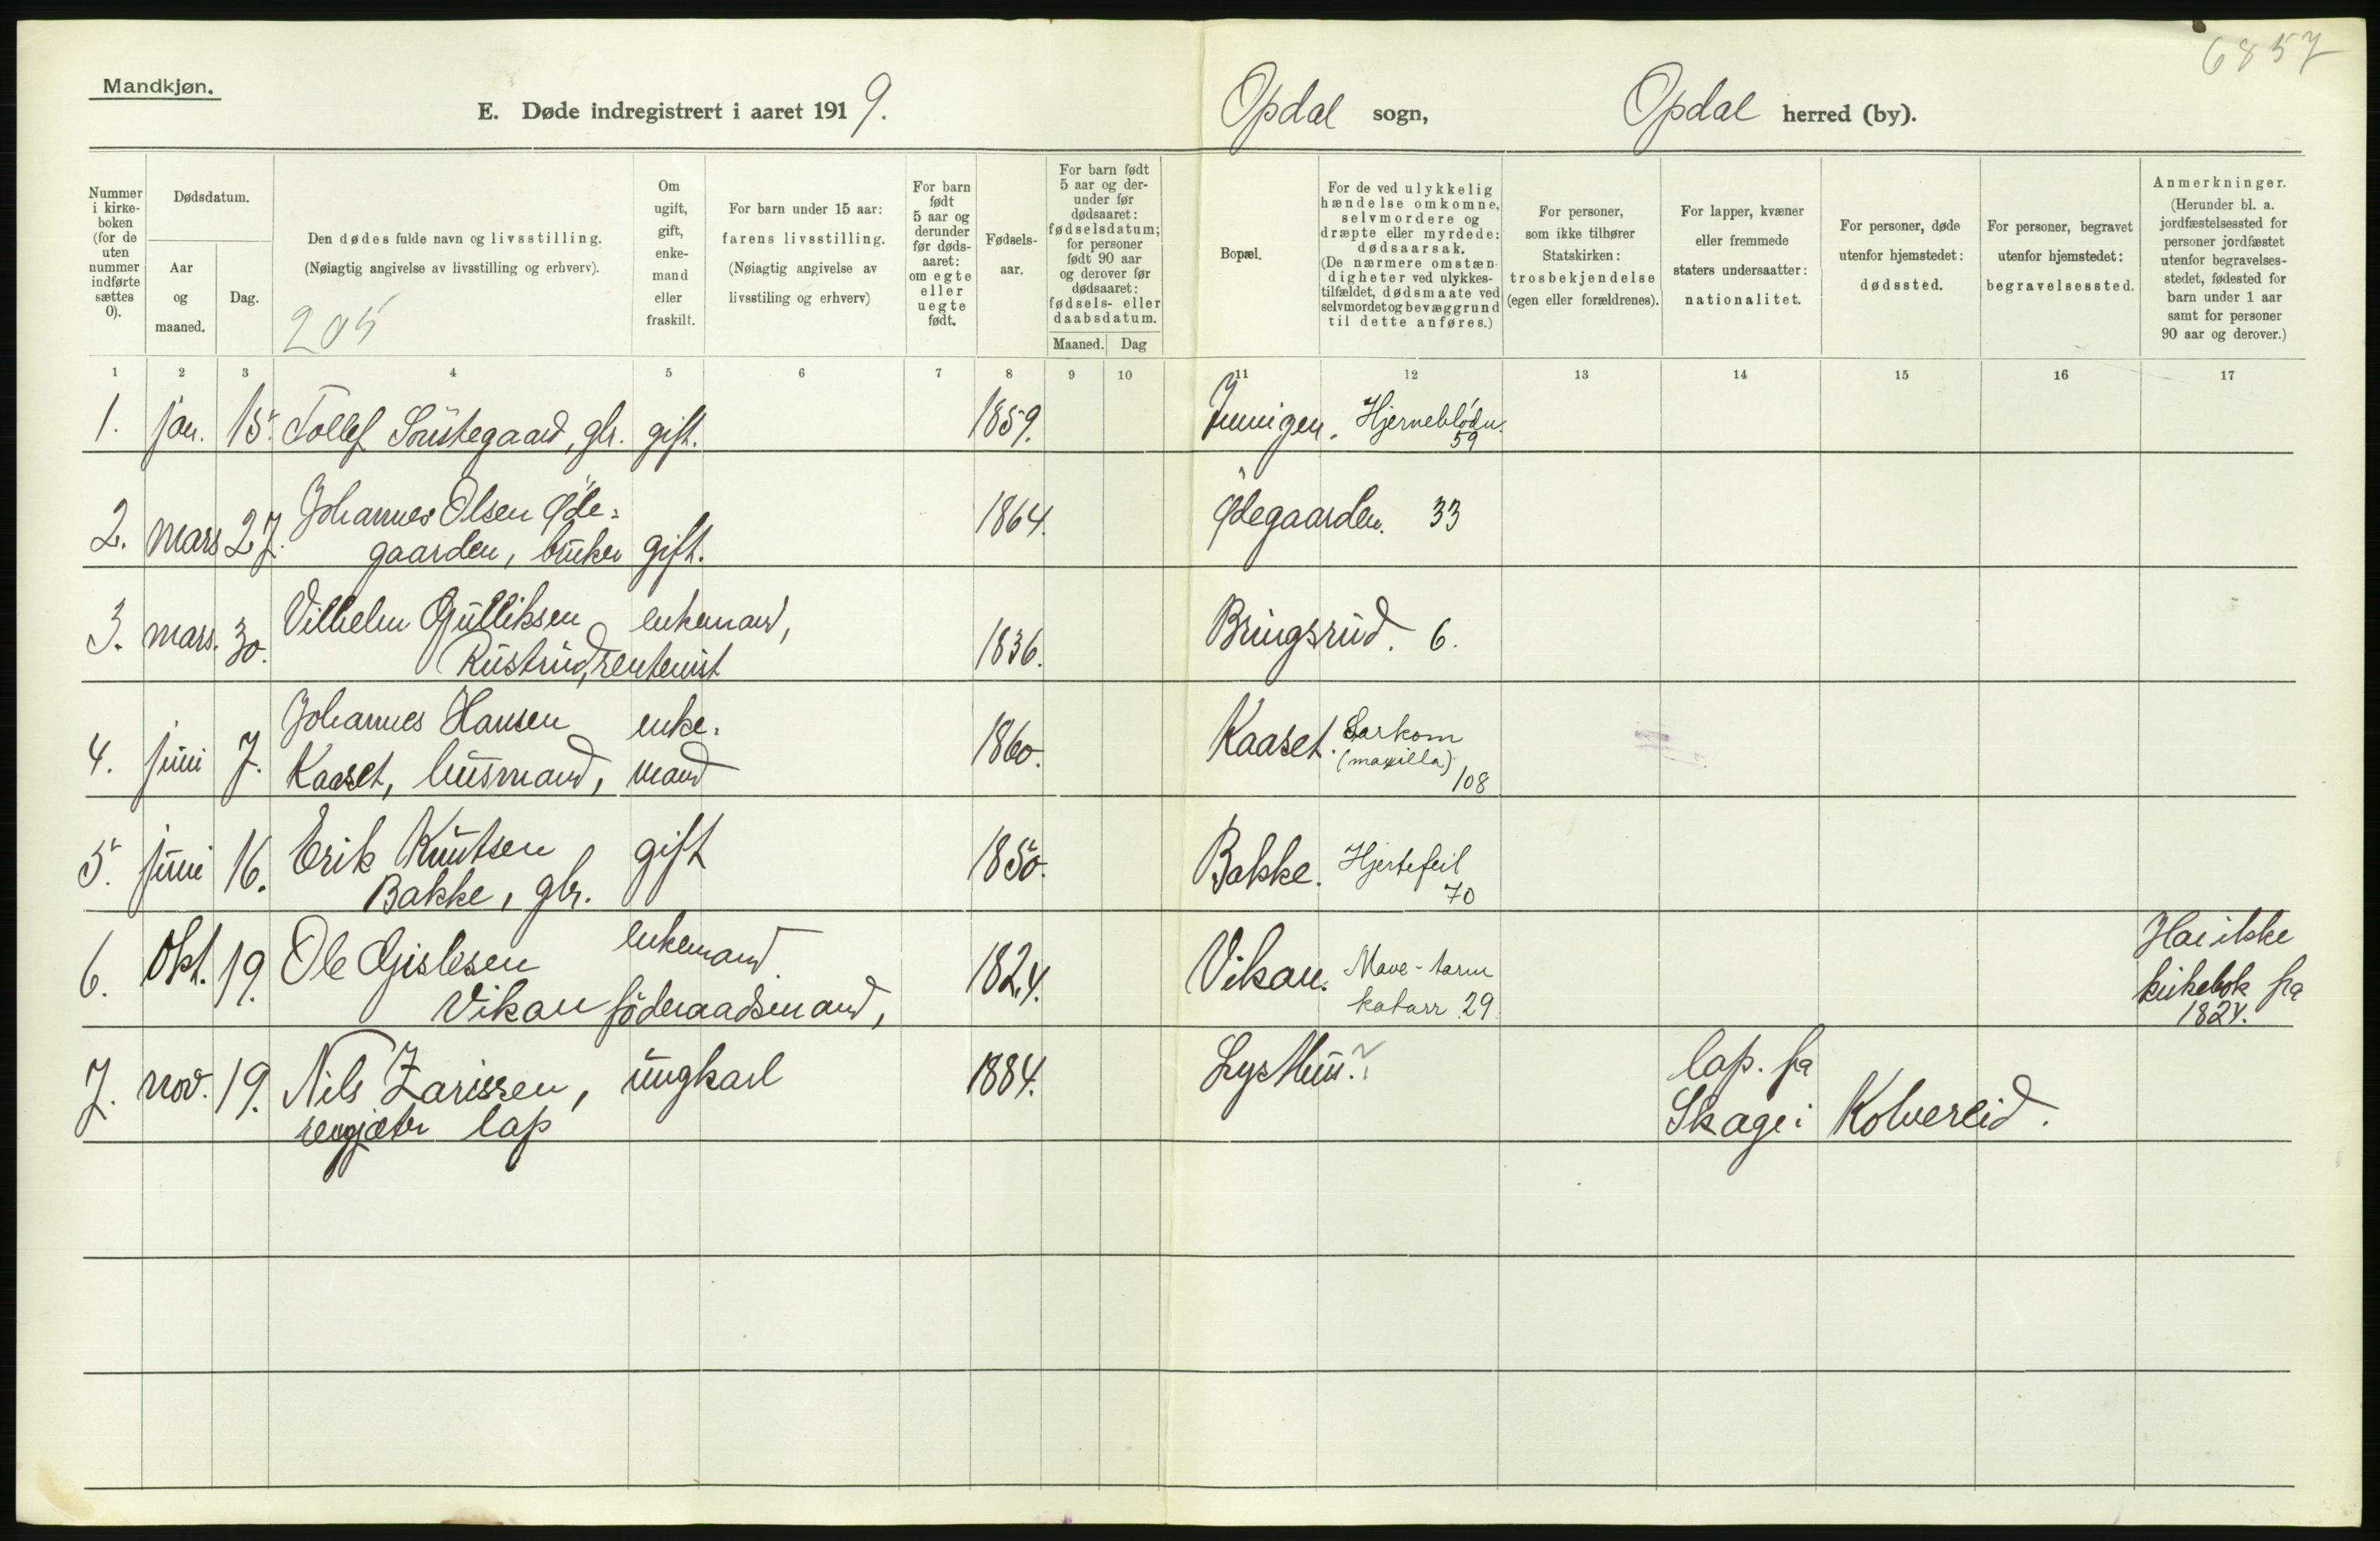 6857
Mandkjøn.
E. Døde indregistrert i aaret 1919.
Opdal sogn, Opdal herred (by).
Nummer i kirke-boken (for de uten nummer indførte sættes 0).
Dødsdatum.
Aar og maaned.
Dag.
Den dødes fulde navn og livsstilling.
(Nøiagtig angivelse av livsstilling og erhverv).
205
Om ugift, gift, enke-mand eller fraskilt.
For barn under 15 aar: farens livsstilling.
(Nøiagtig angivelse av livsstiling og erhverv)
For barn født 5 aar og derunder før døds-aaret: om egte eller uegte født.
Fødsels-aar.
For barn født 5 aar og der-under før dødsaaret: fødselsdatum; for personer født 90 aar og derover før dødsaaret: fødsels- eller daabsdatum.
Maaned. Dag
Bopæl.
For de ved ulykkelig hændelse omkomne, selvmordere og dræpte eller myrdede: dødsaarsak.
(De nærmere omstæn-digheter ved ulykkes-tilfældet, dødsmaate ved selvmordet og bevæggrund til dette anføres.)
For personer, som ikke tilhører Statskirken: trosbekjendelse (egen eller forældrenes).
For lapper, kvæner eller fremmede staters undersaatter: nationalitet.
For personer, døde utenfor hjemstedet: dødssted.
For personer, begravet utenfor hjemstedet: begravelsessted.
Anmerkninger.
(Herunder bl. a. jordfæstelsessted for personer jordfæstet utenfor begravelses-stedet, fødested for barn under 1 aar samt for personer 90 aar og derover.)
1 2 3 4 5 6 7 8 9 10 11 12 13 14 15 16 17
1. jan. 15. Tollef gbr. gift. 1859. Hjerneblödn. 59
2. mars 27. Johannes Olsen Øde=
gaarden, bruker gift. 1864. Ødegaarden. 33
3. mars. 30. Vilhelm Gulliksen enkemand,
Rustrud, rentenist 1836. Bringsrud. 6.
4. juni 7. Johannes Hansen enke=
Kaaset, husmand, mand 1860. Kaaset. Sarkom
(maxilla) 108
5. juni 16. Erik Knutsen gift 1850. Bakke. Hjertefeil
Bakke, gbr. 70
6. Okt. 19. Ole Gislesen enkemand. 1824. Vikan. Mave-tarm
Vikan föderaadsmand, katarr 29.
Har ikke
kirkebok fra
1824.
7. nov. 19. Nils Zarissen, ungkarl 1884. lap. fra
rengjæter lap Skage i Kolvereid.